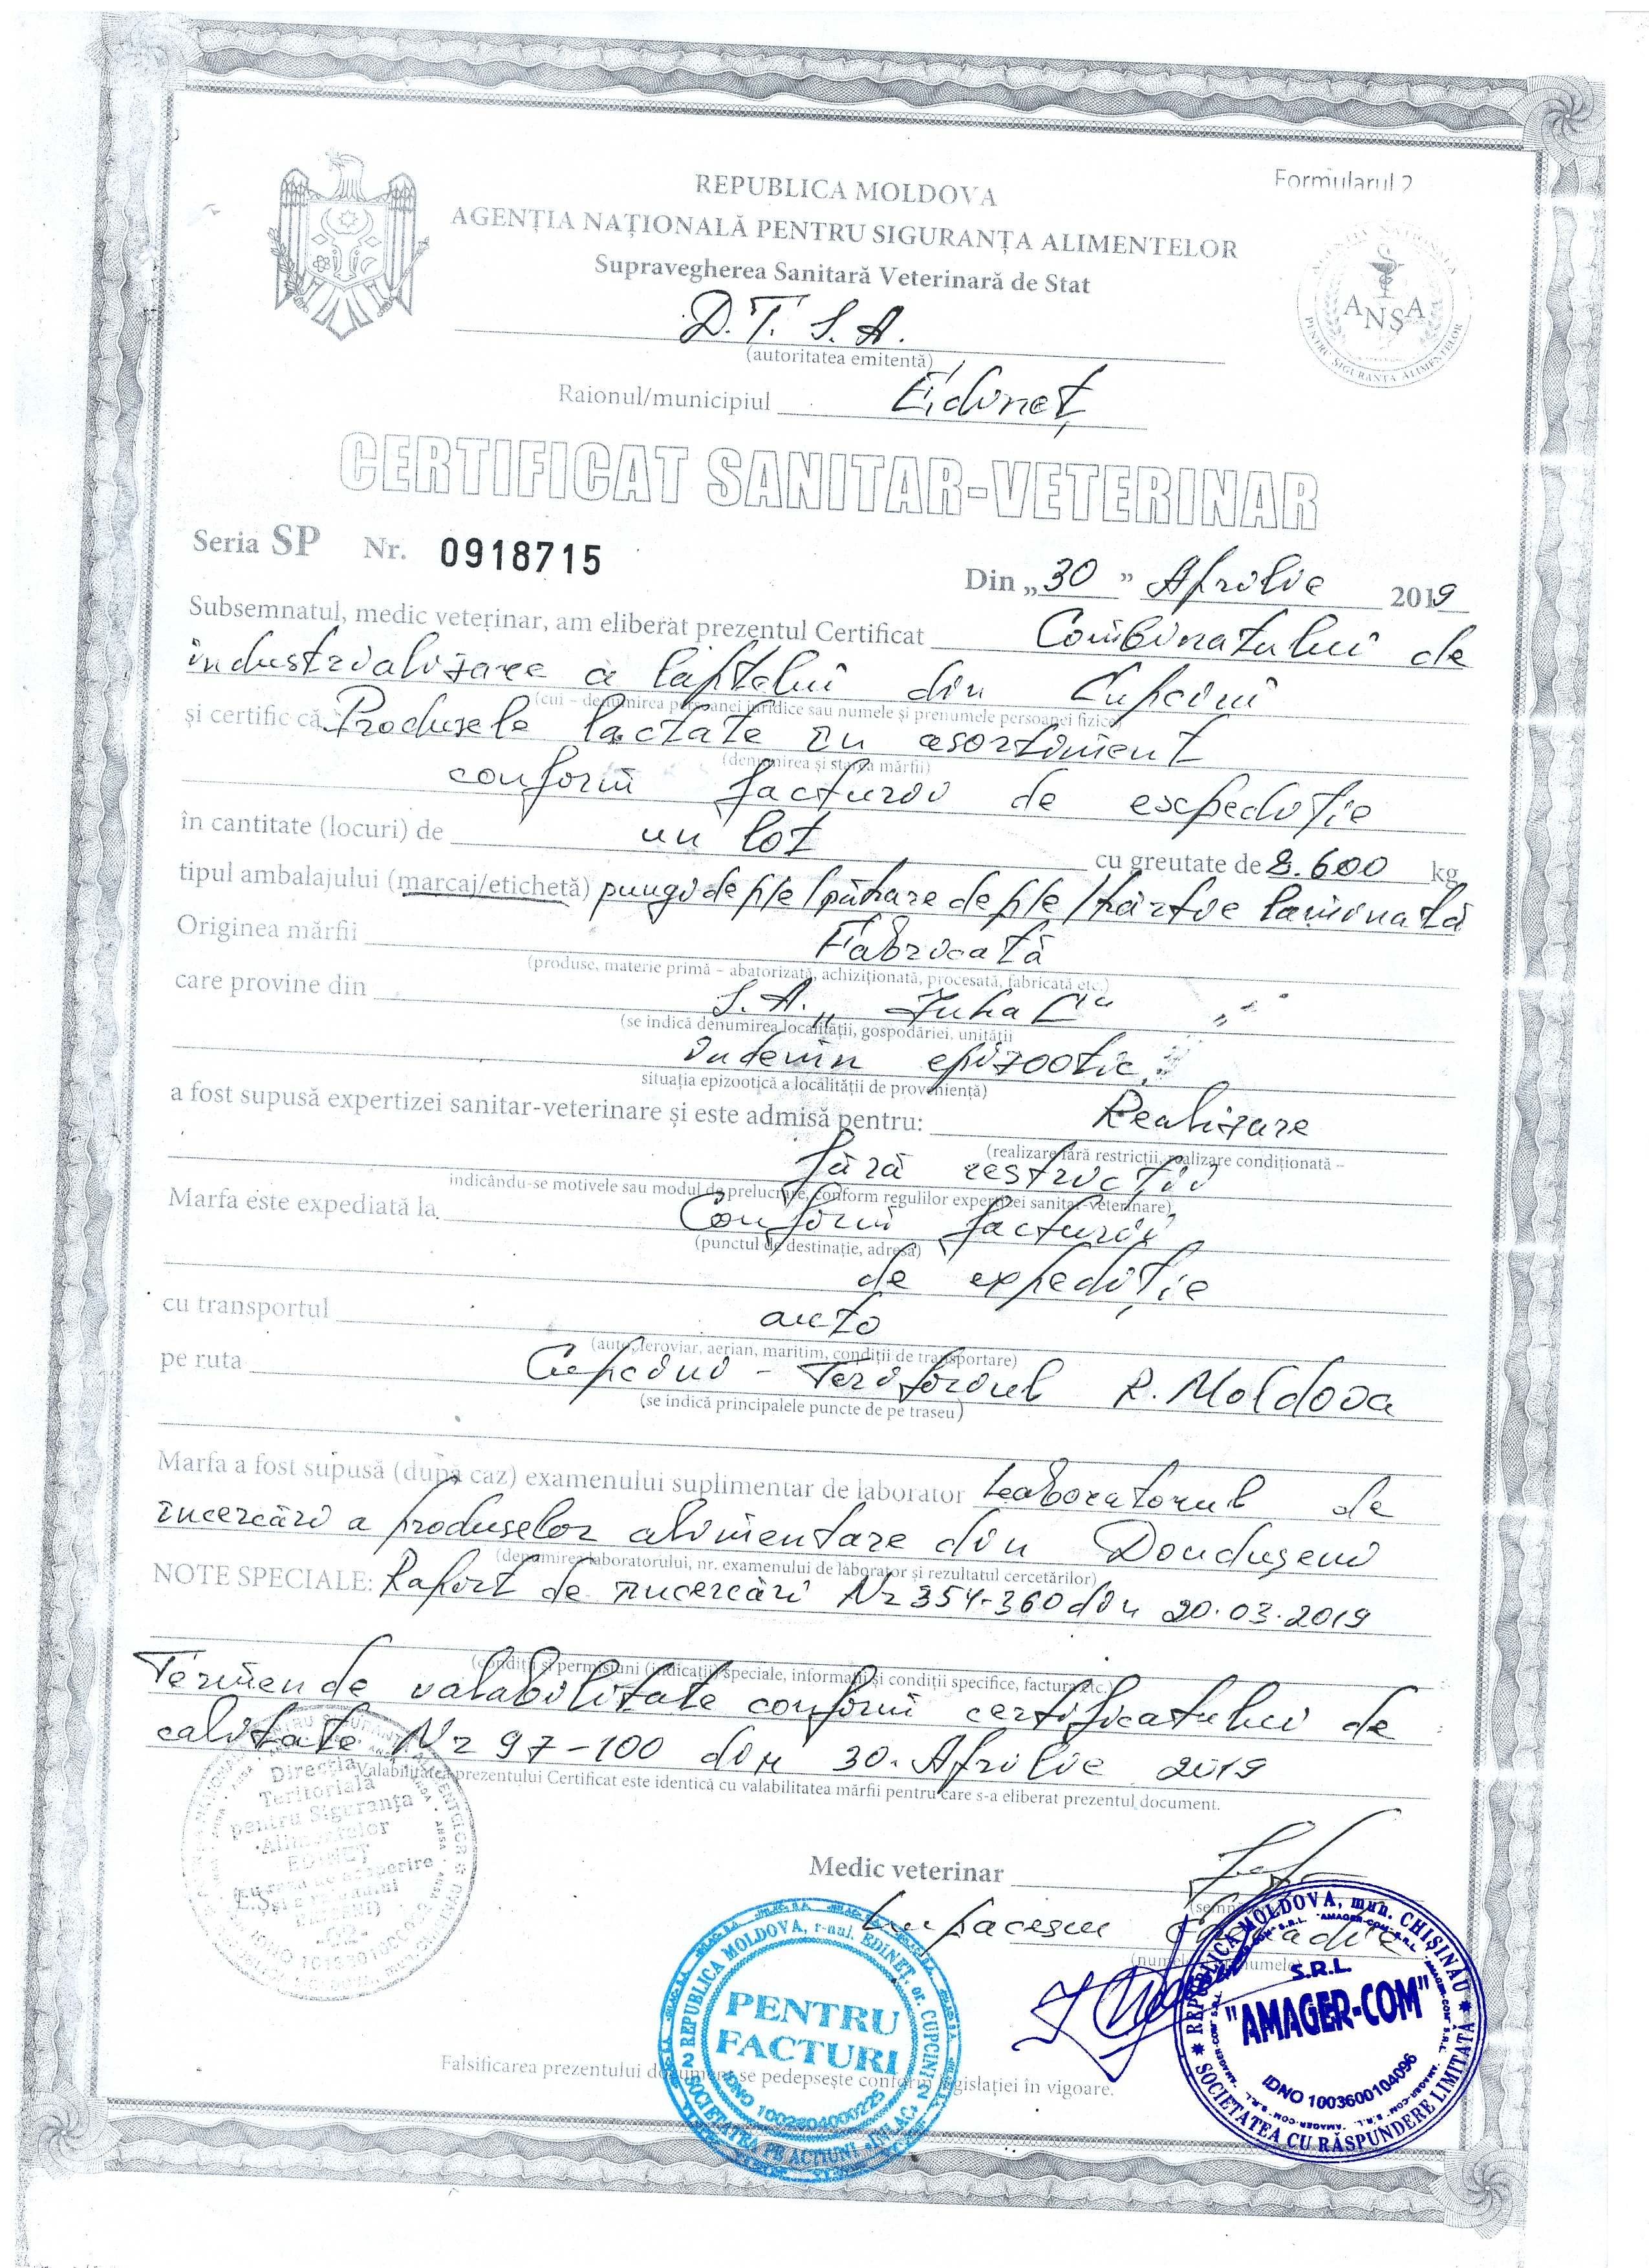 Formularul 2
REPUBLICA MOLDOVA
AGENȚIA NAȚIONALĂ PENTRU SIGURANȚA ALIMENTELOR
Supravegherea Sanitară Veterinară de Stat
ANSA
D.T.S.A.
(autoritatea emitentă)
Raionul/municipiul Edineț
CERTIFICAT SANITAR-VETERINAR
Seria SP Nr. 0918715
Din „30” Aprilie 2019
Subsemnatul, medic veterinar, am eliberat prezentul Certificat Combinatului de
industrializare a laptelui din Cupcini
(cui – denumirea persoanei juridice sau numele și prenumele persoanei fizice)
și certific că Produsele lactate în asortiment
(denumirea și starea mărfii)
conform facturii de expediție
în cantitate (locuri) de un lot cu greutate de 8.600 kg
tipul ambalajului (marcaj/etichetă) pungi de p/e / păhare de p/e / hârtie laminată
Originea mărfii Fabricată
(produse, materie primă – abatorizată, achiziționată, procesată, fabricată etc.)
care provine din S.A. „
(se indică denumirea localității, gospodăriei, unității
indemn epizootic
situația epizootică a localității de proveniență)
a fost supusă expertizei sanitar-veterinare și este admisă pentru: Realizare
(realizare fără restricții, realizare condiționată –
fără restricții
indicându-se motivele sau modul de prelucrare, conform regulilor expertizei sanitar-veterinare)
Marfa este expediată la Conform facturii
(punctul de destinație, adresa)
de expediție
cu transportul auto
(auto, feroviar, aerian, maritim, condiții de transportare)
pe ruta Cupcini - Teritoriul R. Moldova
(se indică principalele puncte de pe traseu)
Marfa a fost supusă (după caz) examenului suplimentar de laborator Laboratorul de
încercări a produselor alimentare din Dondușeni
(denumirea laboratorului, nr. examenului de laborator și rezultatul cercetărilor)
NOTE SPECIALE: Raport de încercări Nr 354-360 din 20.03.2019
(condiții și permisiuni (indicații) speciale, informații și condiții specifice, factura etc.)
Termen de valabilitate conform certificatului de
calitate Nr 97-100 din 30. Aprilie 2019
Valabilitatea prezentului Certificat este identică cu valabilitatea mărfii pentru care s-a eliberat prezentul document.
Direcția
Teritorială
pentru Siguranța
Alimentelor
EDINEȚ
Medic veterinar
REPUBLICA MOLDOVA, r-nul. EDINEȚ, or. CUPCINI
PENTRU
FACTURI
IDNO 1002604000225
SOCIETATEA PE ACȚIUNI
REPUBLICA MOLDOVA, mun. CHIȘINĂU
S.R.L.
"AMAGER-COM"
IDNO 1003600104096
SOCIETATEA CU RĂSPUNDERE LIMITATĂ
Falsificarea prezentului document se pedepsește conform legislației în vigoare.